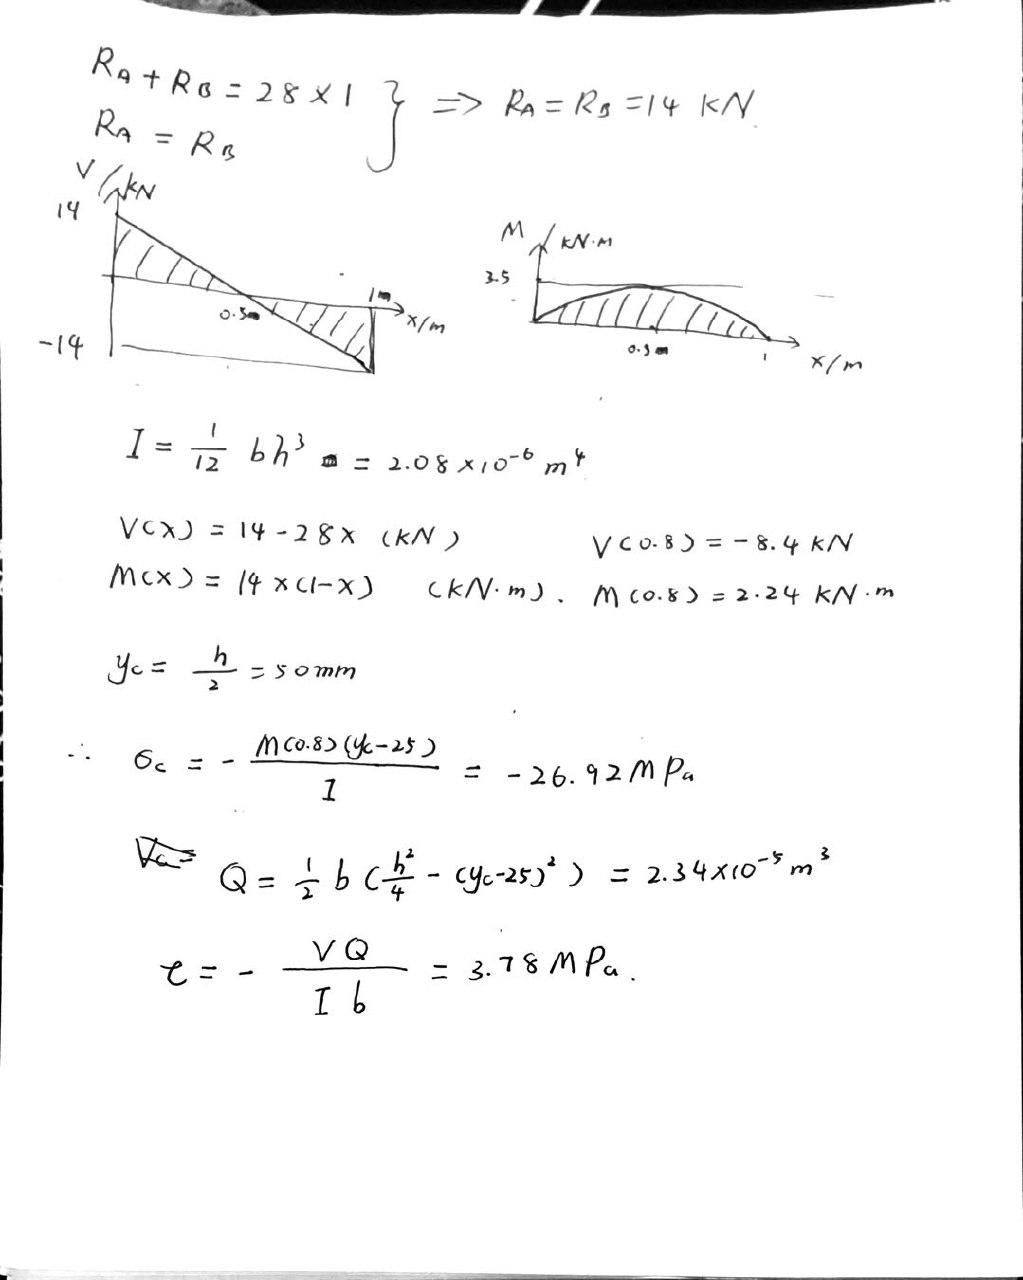 R_A + R_B = 28 × 1 } => R_A = R_B = 14 kN.
R_A = R_B
V / kN
14
0.5m
1m
x/m
-14
M / kN·m
3.5
0.5m
1
x/m
I = 1/12 bh³ = 2.08 × 10⁻⁶ m⁴
V(x) = 14 - 28x (kN) V(0.8) = -8.4 kN
M(x) = 14x(1-x) (kN·m). M(0.8) = 2.24 kN·m
y_c = h/2 = 50mm
∴ σ_c = - M(0.8)(y_c-25) / I = -26.92 MPa
Q = 1/2 b (h²/4 - (y_c-25)²) = 2.34×10⁻⁵ m³
τ = - VQ / Ib = 3.78 MPa.